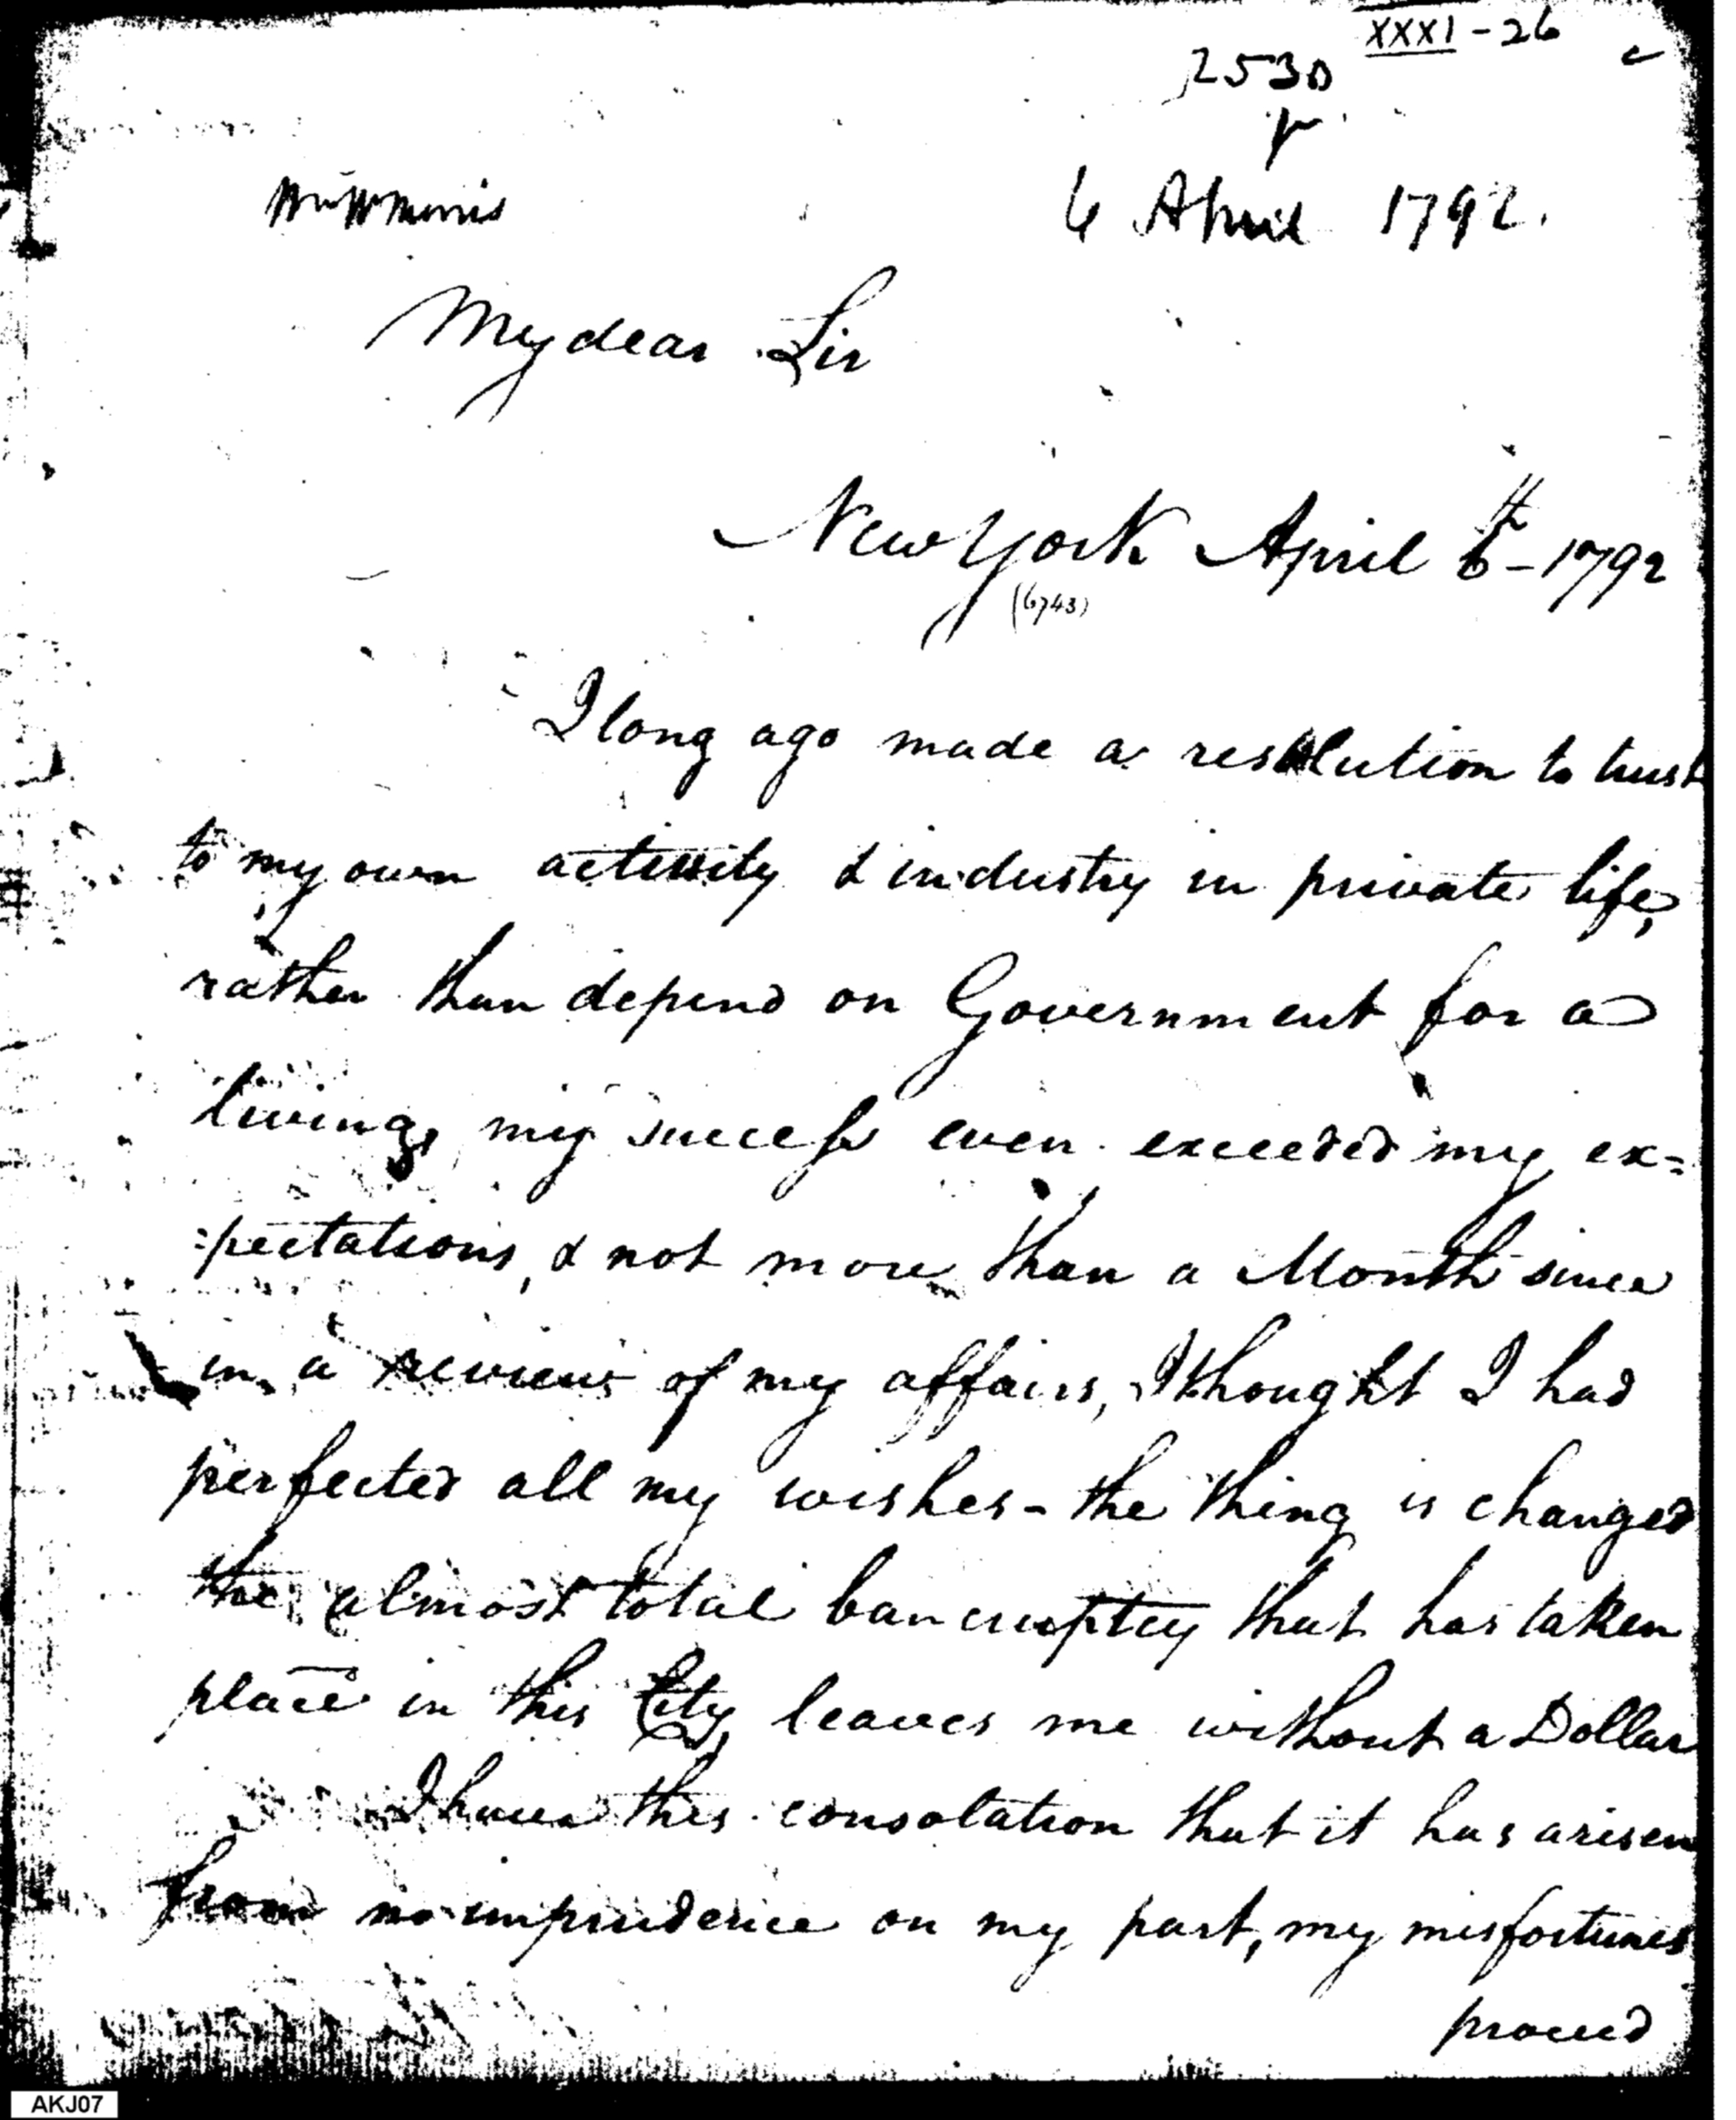 XXXI - 26
2530
6 April 1792.
My dear Sir
New York April 6th - 1792
(6743)
I long ago made a resolution to trust
to my own activity & industry in private life,
rather than depend on Government for a
living, my success even exceeded my ex=
=pectations, & not more than a Month since
in a review of my affairs, I thought I had
perfected all my wishes - the thing is changed
the almost total bancruptcy that has taken
place in this City leaves me without a Dollar
I have this consolation that it has arisen
from no imprudence on my part, my misfortunes
proceed
AKJ07